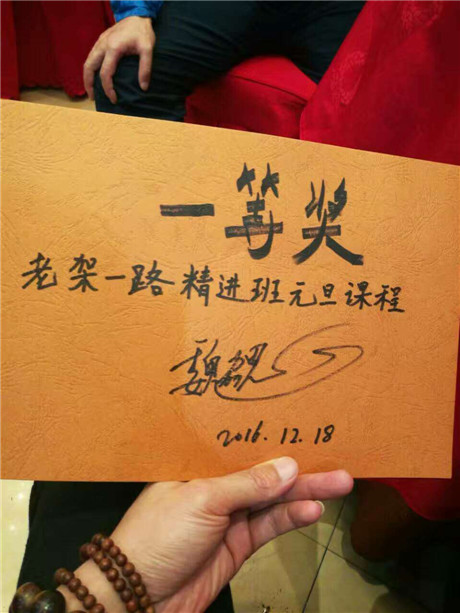 一等奖
老架一路精进班元旦课程
2016.12.18